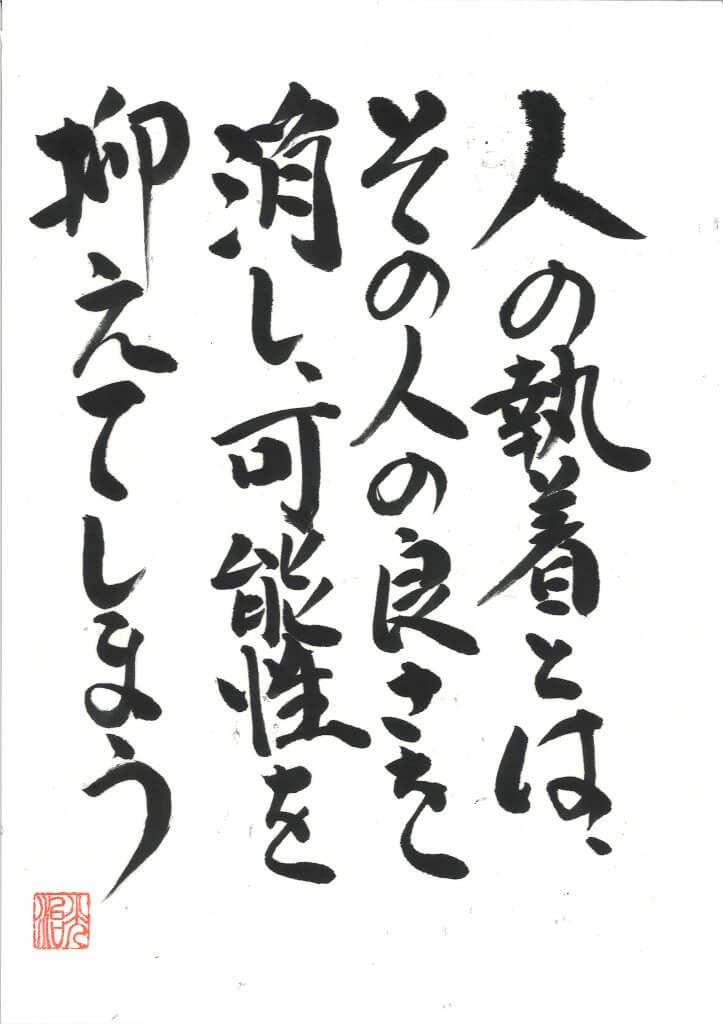 人の執着とは、
その人の良さを
消し、可能性を
抑えてしまう